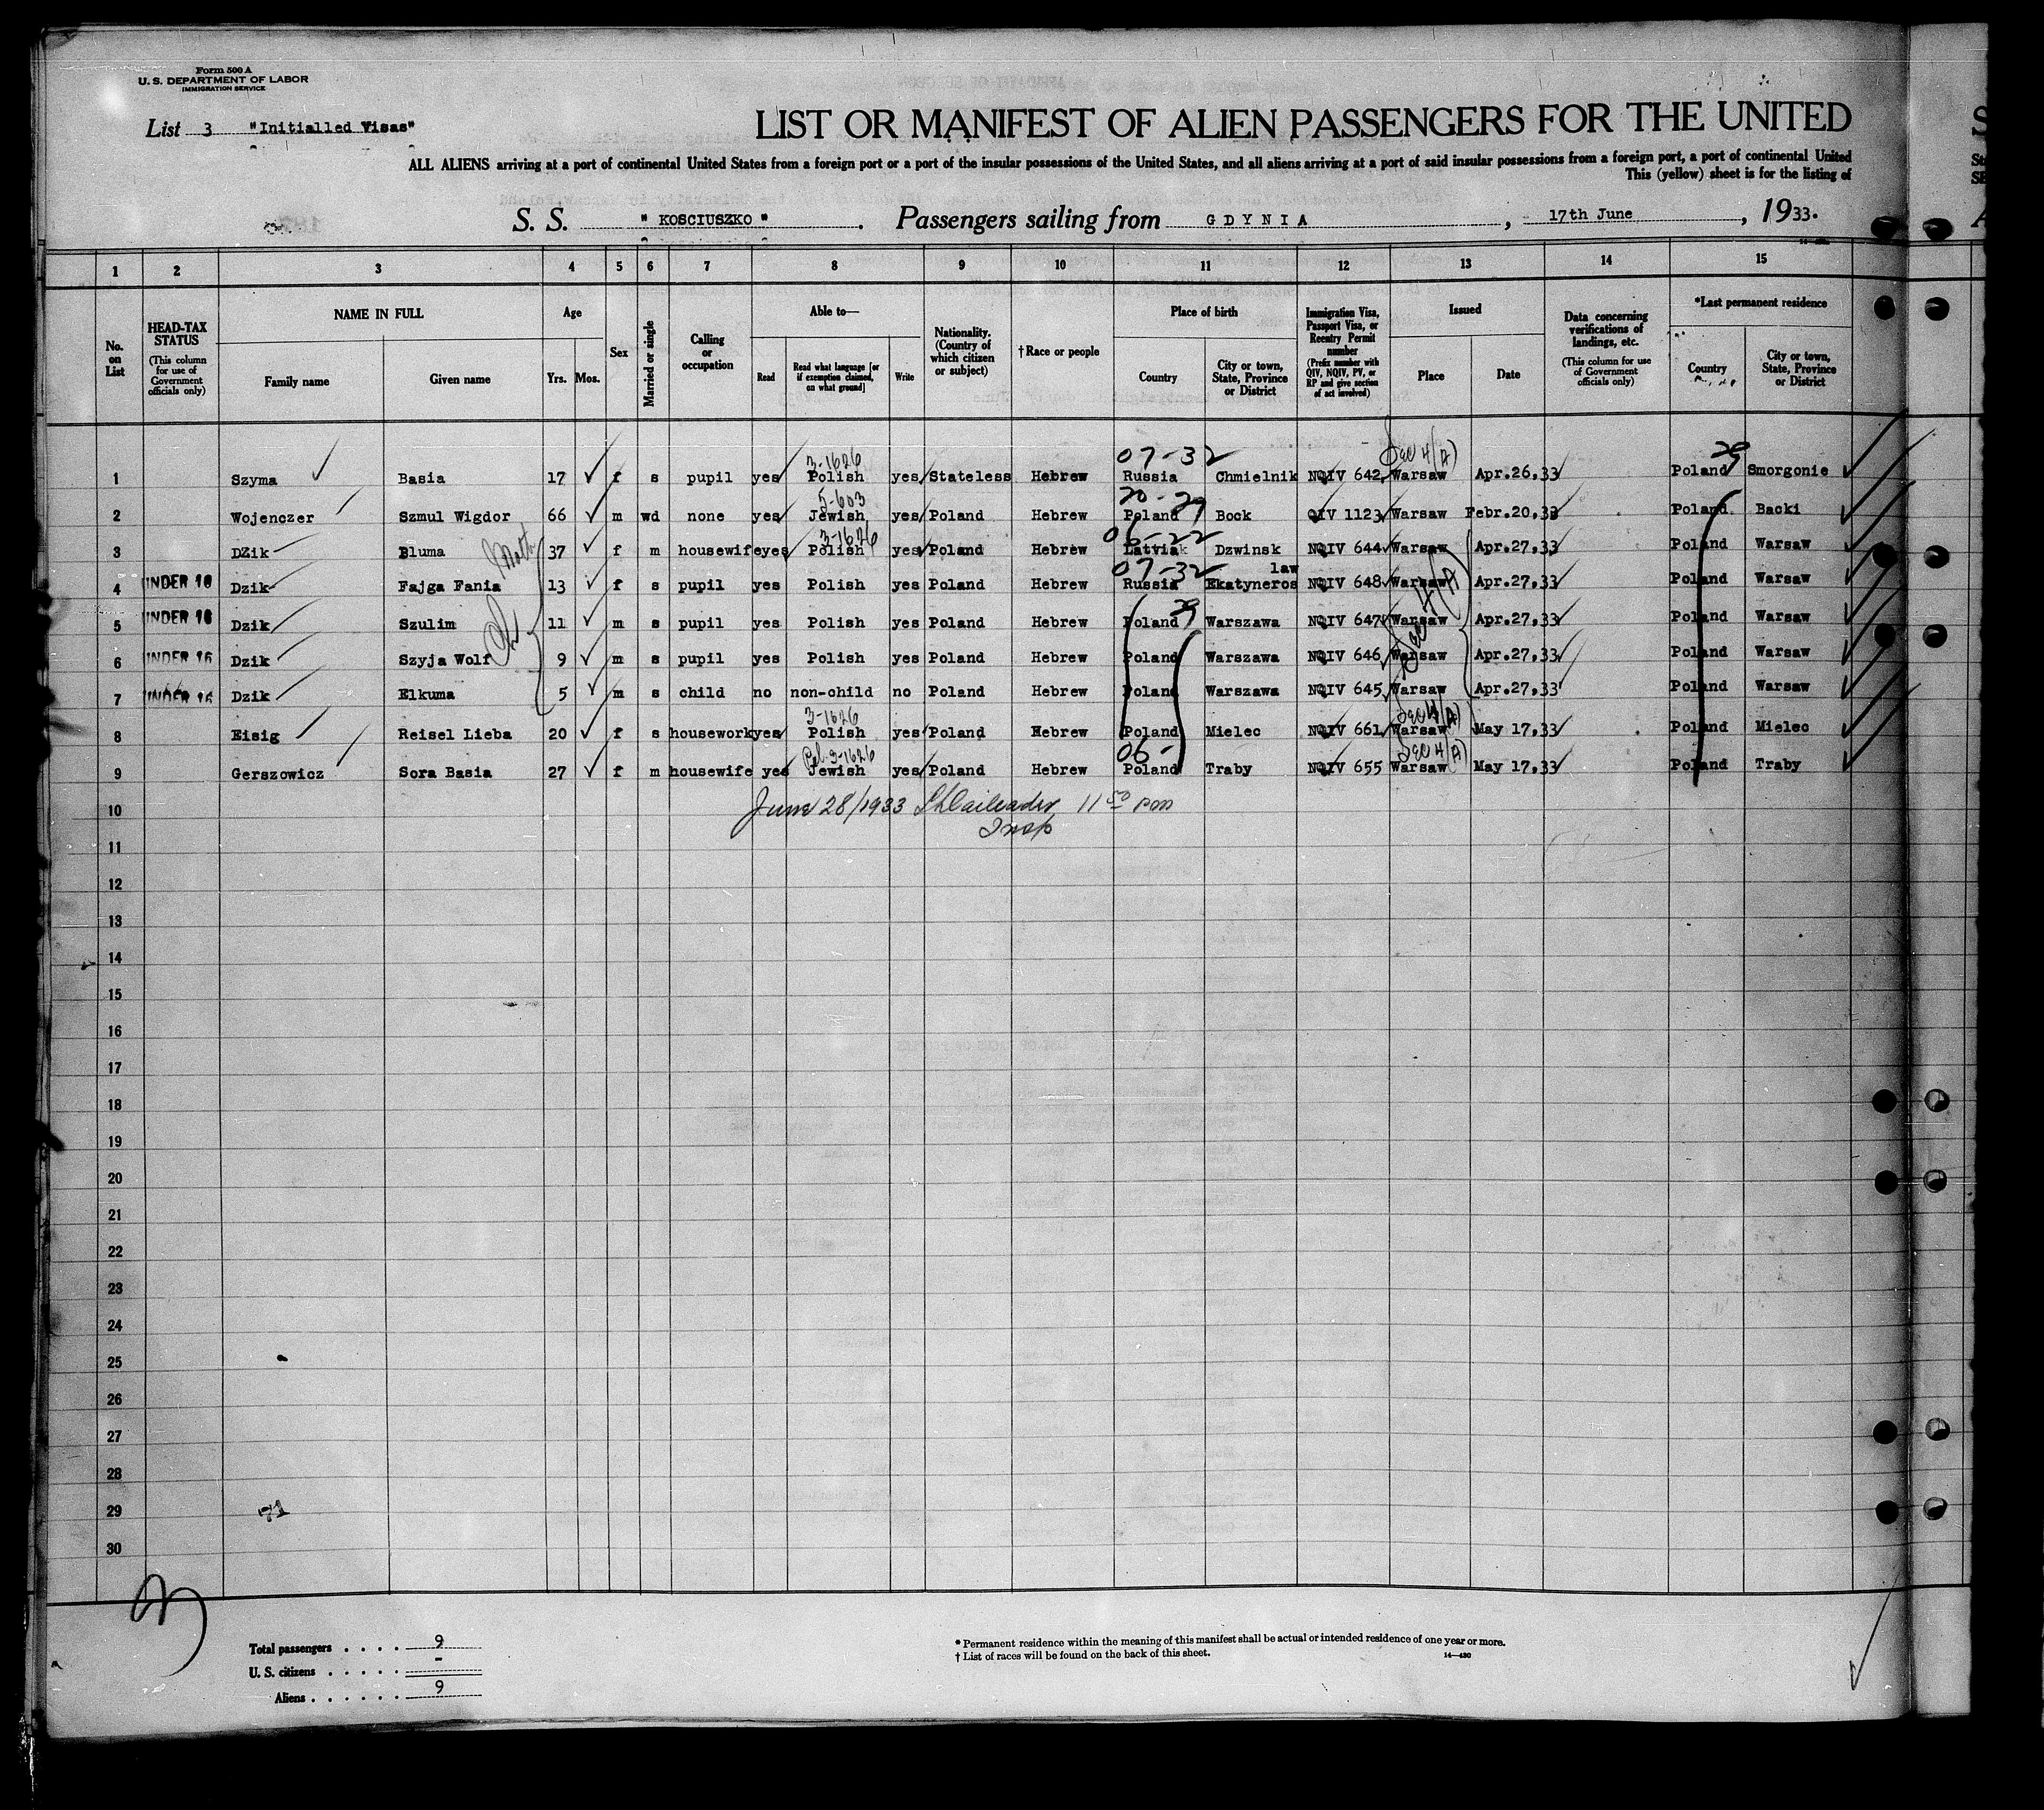 Form 500 A
U. S. DEPARTMENT OF LABOR
IMMIGRATION SERVICE
List 3 "Initialled Visas"
LIST OR MANIFEST OF ALIEN PASSENGERS FOR THE UNITED
ALL ALIENS arriving at a port of continental United States from a foreign port or a port of the insular possessions of the United States, and all aliens arriving at a port of said insular possessions from a foreign port, a port of continental United
This (yellow) sheet is for the listing of
S. S. "KOSCIUSZKO". Passengers sailing from GDYNIA, 17th June, 1933.
1 2 3 4 5 6 7 8 9 10 11 12 13 14 15
No. on List
HEAD-TAX STATUS (This column for use of Government officials only)
NAME IN FULL Family name Given name
Age Yrs. Mos.
Sex
Married or single
Calling or occupation
Able to— Read Read what language [or if exemption claimed, on what ground] Write
Nationality. (Country of which citizen or subject)
†Race or people
Place of birth Country City or town, State, Province or District
Immigration Visa, Passport Visa, or Reentry Permit number (Prefix number with QIV, NQIV, PV, or RP and give section of act involved)
Issued Place Date
Data concerning verifications of landings, etc. (This column for use of Government officials only)
*Last permanent residence Country City or town, State, Province or District
07-32 29
3-1626 Sec 4(A)
1 Szyma Basia 17 f s pupil yes Polish yes Stateless Hebrew Russia Chmielnik NQIV 642 Warsaw Apr.26,33 Poland Smorgonie
5-603 29
2 Wojenczer Szmul Wigdor 66 m wd none yes Jewish yes Poland Hebrew Poland Bock QIV 1123 Warsaw Febr.20,33 Poland Backi
3-1626 06-22
3 Dzik Bluma 37 f m housewife yes Polish yes Poland Hebrew Latvia Dzwinsk NQIV 644 Warsaw Apr.27,33 Poland Warsaw
07-32 law
4 UNDER 16 Dzik Fajga Fania 13 f s pupil yes Polish yes Poland Hebrew Russia Ekatyneros NQIV 648 Warsaw Apr.27,33 Poland Warsaw
29
5 UNDER 16 Dzik Szulim 11 m s pupil yes Polish yes Poland Hebrew Poland Warszawa NQIV 647 Warsaw Apr.27,33 Poland Warsaw
6 UNDER 16 Dzik Szyja Wolf 9 m s pupil yes Polish yes Poland Hebrew Poland Warszawa NQIV 646 Warsaw Apr.27,33 Poland Warsaw
7 UNDER 16 Dzik Elkuma 5 m s child no non-child no Poland Hebrew Poland Warszawa NQIV 645 Warsaw Apr.27,33 Poland Warsaw
3-1626 Sec 4(A)
8 Eisig Reisel Lieba 20 f s housework yes Polish yes Poland Hebrew Poland Mielec NQIV 661 Warsaw May 17,33 Poland Mielec
3-1626 06- Sec 4(A)
9 Gerszowicz Sora Basia 27 f m housewife yes Jewish yes Poland Hebrew Poland Traby NQIV 655 Warsaw May 17,33 Poland Traby
June 28/1933 11 50 pm
Insp
10
11
12
13
14
15
16
17
18
19
20
21
22
23
24
25
26
27
28
29
30
Total passengers . . . . 9
U. S. citizens . . . . . -
Aliens . . . . . . 9
* Permanent residence within the meaning of this manifest shall be actual or intended residence of one year or more.
† List of races will be found on the back of this sheet. 14—430